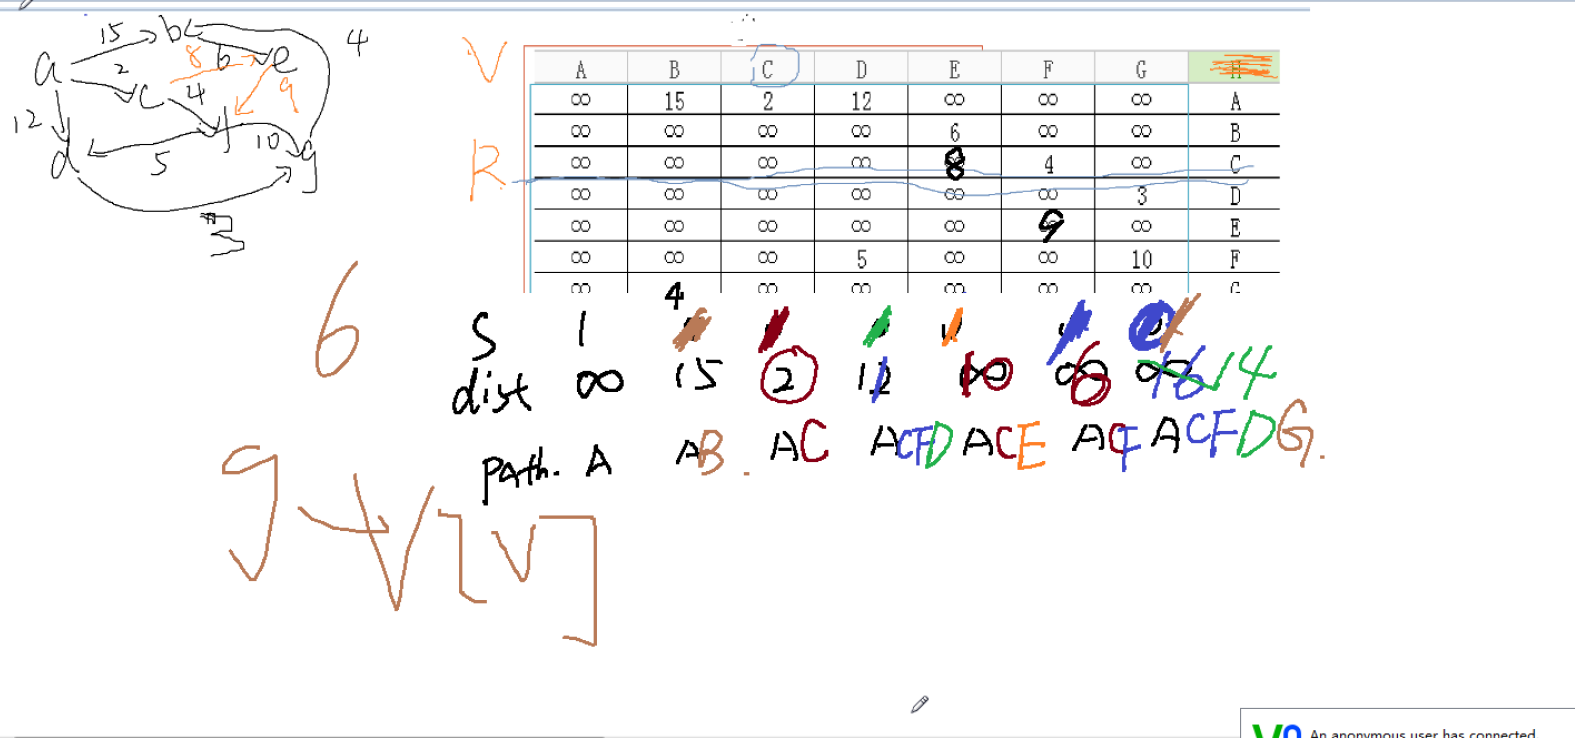 15 b 4
a 2 8 6 e
c 4 9
12 f 10
d 5 g
3
V
A B C D E F G H
∞ 15 2 12 ∞ ∞ ∞ A
∞ ∞ ∞ ∞ 6 ∞ ∞ B
R ∞ ∞ ∞ ∞ 8 4 ∞ C
∞ ∞ ∞ ∞ ∞ ∞ 3 D
∞ ∞ ∞ ∞ ∞ 9 ∞ E
∞ ∞ ∞ 5 ∞ ∞ 10 F
∞ 4 ∞ ∞ ∞ ∞ ∞ G
6
S 1
dist ∞ 15 2 12 10 6 16 14
path. A AB. AC ACFD ACE ACF ACFDG.
g → V[V]
An anonymous user has connected